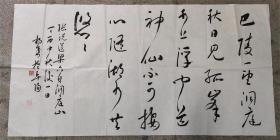 巴陵一望洞庭
秋日见孤峯
水上浮闻道
神仙不可接
心随湖水共
悠悠
张说送梁六自洞庭山
丁酉中秋后一日